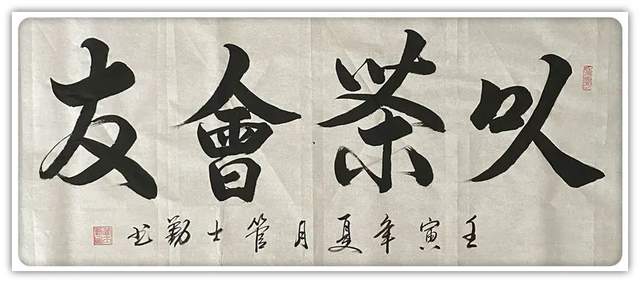 以茶會友
壬寅年夏月管士勤书